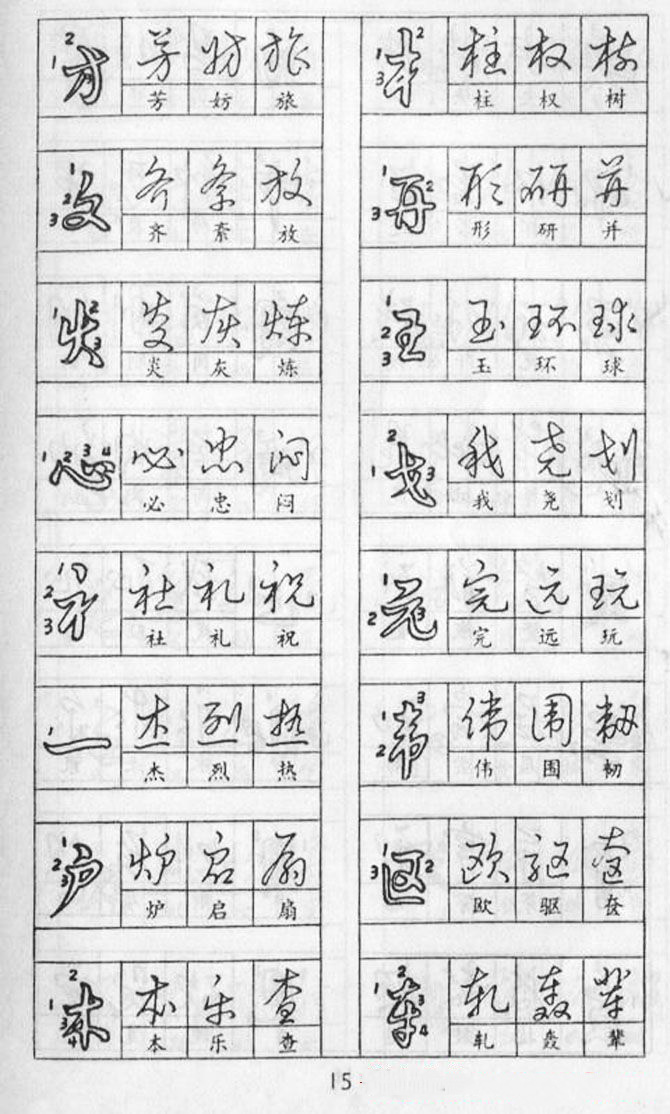 方 芳 妨 旅 木 柱 权 树
芳 妨 旅 柱 权 树
文 齐 紊 放 开 形 研 并
齐 紊 放 形 研 并
火 炎 灰 炼 王 玉 环 球
炎 灰 炼 玉 环 球
心 必 忠 闷 戈 我 尧 划
必 忠 闷 我 尧 划
礻 社 礼 祝 元 完 远 玩
社 礼 祝 完 远 玩
灬 杰 烈 热 韦 伟 围 韧
杰 烈 热 伟 围 韧
户 炉 启 扇 区 欧 驱 奁
炉 启 扇 欧 驱 奁
木 本 乐 查 车 轧 轰 辈
本 乐 查 轧 轰 辈
15